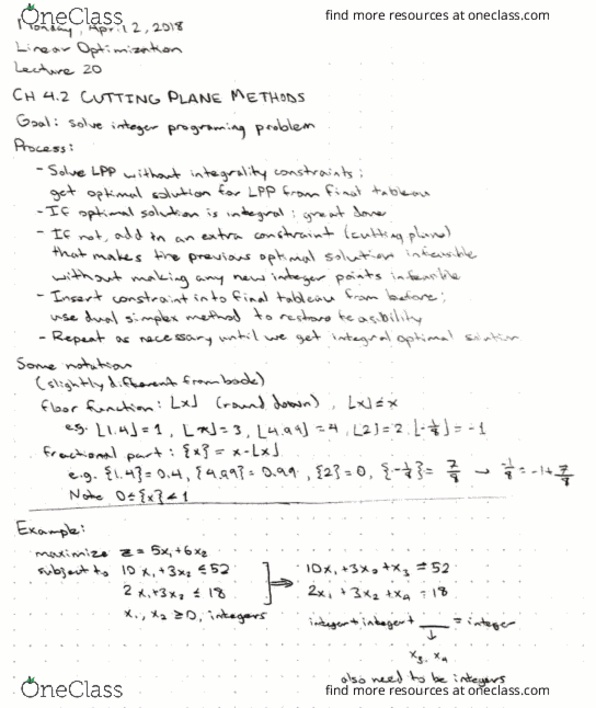 OneClass
find more resources at oneclass.com
Monday, April 2, 2018
Linear Optimization
Lecture 20
CH 4.2 CUTTING PLANE METHODS
Goal: solve integer programing problem
Process:
- Solve LPP without integrality constraints;
get optimal solution for LPP from final tableau
- If optimal solution is integral; great done
- If not, add in an extra constraint (cutting plane)
that makes the previous optimal solution infeasible
without making any new integer points infeasible
- Insert constraint into final tableau from before;
use dual simplex method to restore feasibility
- Repeat as necessary until we get integral optimal solution
Some notation
(slightly different from book)
floor function: ⌊x⌋ (round down), ⌊x⌋≤x
eg. ⌊1.4⌋=1, ⌊π⌋=3, ⌊4.99⌋=4, ⌊2⌋=2, ⌊-1/8⌋=-1
fractional part: {x} = x-⌊x⌋
e.g. {1.4}=0.4, {4.99}=0.99, {2}=0, {-1/8}= 7/8 → -1/8=-1+7/8
Note 0≤{x}<1
Example:
maximize z = 5x₁+6x₂
subject to 10x₁+3x₂ ≤52 10x₁+3x₂+x₃=52
2x₁+3x₂ ≤ 18 ⇒ 2x₁+3x₂+x₄=18
x₁,x₂ ≥0, integers integer+integer+ __ = integer
↓
x₃, x₄
also need to be integers
OneClass
find more resources at oneclass.com